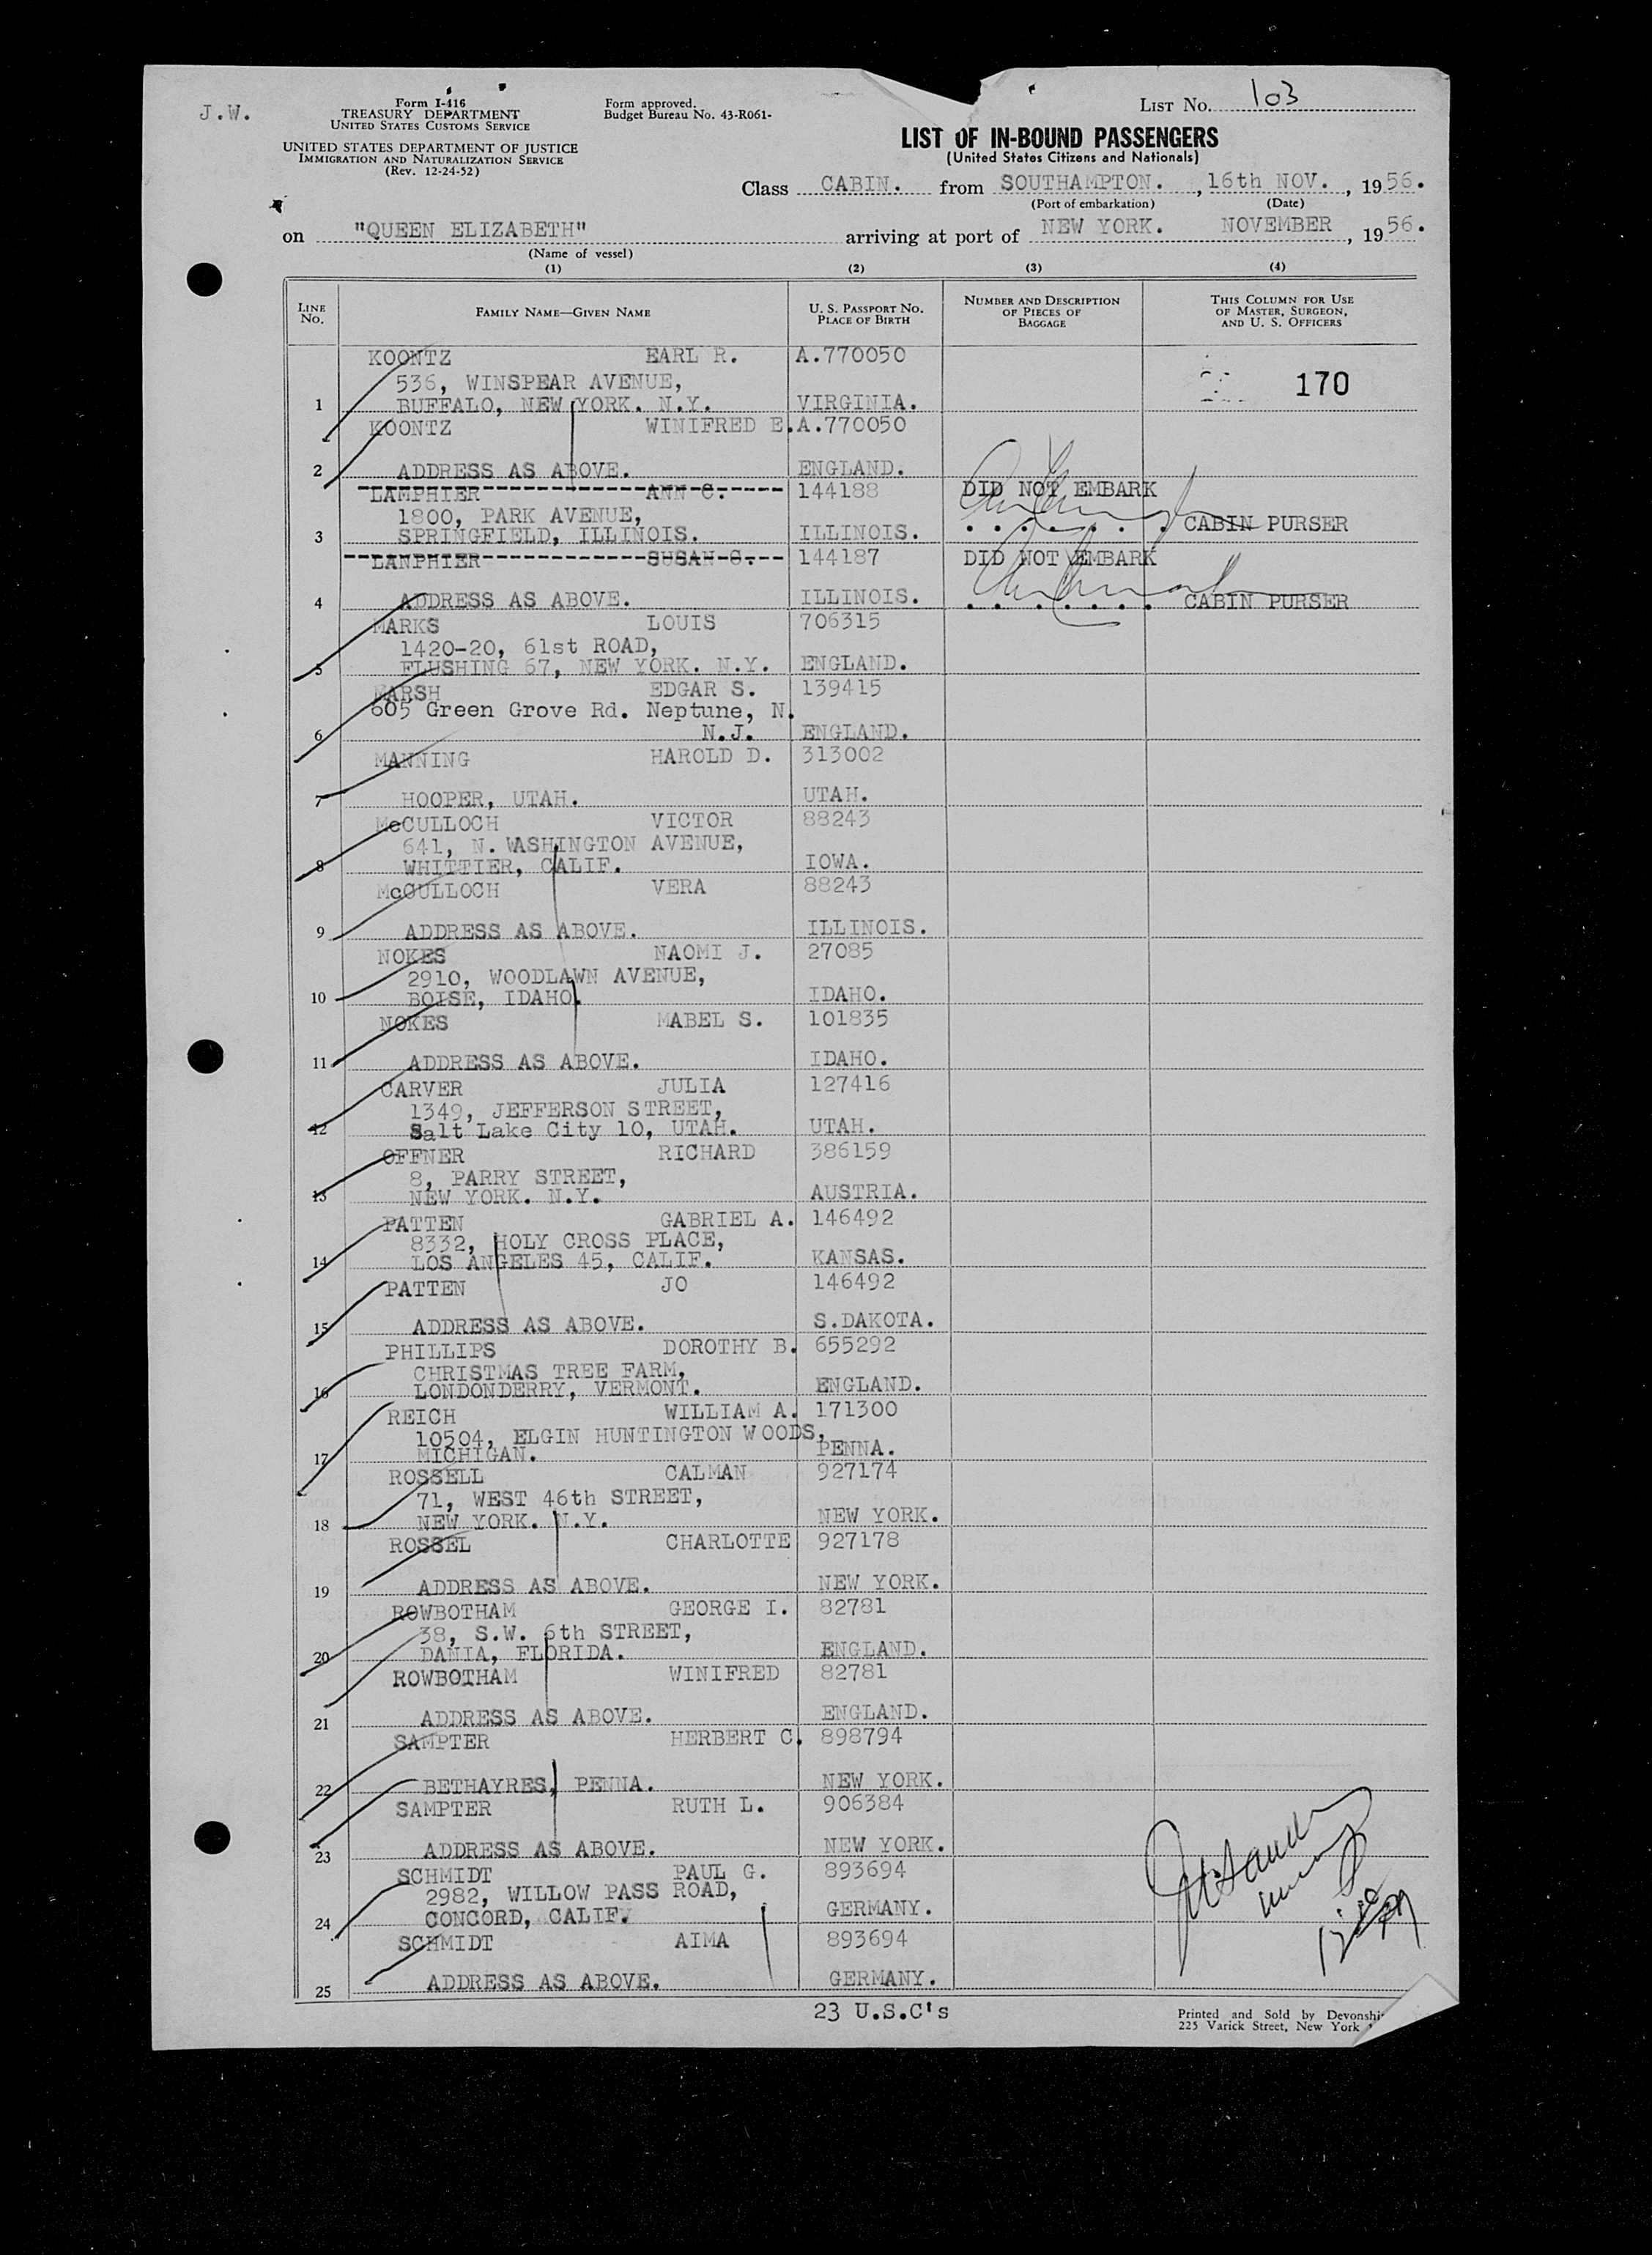 J.W.
Form I-416
TREASURY DEPARTMENT
UNITED STATES CUSTOMS SERVICE
UNITED STATES DEPARTMENT OF JUSTICE
IMMIGRATION AND NATURALIZATION SERVICE
(Rev. 12-24-52)
Form approved.
Budget Bureau No. 43-R061-
LIST No. 103
LIST OF IN-BOUND PASSENGERS
(United States Citizens and Nationals)
Class CABIN. from SOUTHAMPTON. , 16th NOV. , 1956.
(Port of embarkation) (Date)
on "QUEEN ELIZABETH" arriving at port of NEW YORK. NOVEMBER , 1956.
(Name of vessel)
(1) (2) (3) (4)
LINE No. FAMILY NAME—GIVEN NAME U. S. PASSPORT No. PLACE OF BIRTH NUMBER AND DESCRIPTION OF PIECES OF BAGGAGE THIS COLUMN FOR USE OF MASTER, SURGEON, AND U. S. OFFICERS
KOONTZ EARL R. A.770050
536, WINSPEAR AVENUE, 170
1 BUFFALO, NEW YORK. N.Y. VIRGINIA.
KOONTZ WINIFRED E. A.770050
2 ADDRESS AS ABOVE. ENGLAND.
LAMPHIER ANN C. 144188 DID NOT EMBARK
1800, PARK AVENUE,
3 SPRINGFIELD, ILLINOIS. ILLINOIS. . . . . . . . CABIN PURSER
LANPHIER SUSAN C. 144187 DID NOT EMBARK
4 ADDRESS AS ABOVE. ILLINOIS. . . . . . . . CABIN PURSER
MARKS LOUIS 706315
1420-20, 61st ROAD,
5 FLUSHING 67, NEW YORK. N.Y. ENGLAND.
MARSH EDGAR S. 139415
605 Green Grove Rd. Neptune, N.
6 N.J. ENGLAND.
MANNING HAROLD D. 313002
7 HOOPER, UTAH. UTAH.
McCULLOCH VICTOR 88243
641, N. WASHINGTON AVENUE,
8 WHITTIER, CALIF. IOWA.
McCULLOCH VERA 88243
9 ADDRESS AS ABOVE. ILLINOIS.
NOKES NAOMI J. 27085
2910, WOODLAWN AVENUE,
10 BOISE, IDAHO. IDAHO.
NOKES MABEL S. 101835
11 ADDRESS AS ABOVE. IDAHO.
CARVER JULIA 127416
1349, JEFFERSON STREET,
12 Salt Lake City 10, UTAH. UTAH.
OFFNER RICHARD 386159
8, PARRY STREET,
13 NEW YORK. N.Y. AUSTRIA.
PATTEN GABRIEL A. 146492
8332, HOLY CROSS PLACE,
14 LOS ANGELES 45, CALIF. KANSAS.
PATTEN JO 146492
15 ADDRESS AS ABOVE. S.DAKOTA.
PHILLIPS DOROTHY B. 655292
CHRISTMAS TREE FARM,
16 LONDONDERRY, VERMONT. ENGLAND.
REICH WILLIAM A. 171300
10504, ELGIN HUNTINGTON WOODS,
17 MICHIGAN. PENNA.
ROSSELL CALMAN 927174
71, WEST 46th STREET,
18 NEW YORK. N.Y. NEW YORK.
ROSSEL CHARLOTTE 927178
19 ADDRESS AS ABOVE. NEW YORK.
ROWBOTHAM GEORGE I. 82781
38, S.W. 6th STREET,
20 DANIA, FLORIDA. ENGLAND.
ROWBOTHAM WINIFRED 82781
21 ADDRESS AS ABOVE. ENGLAND.
SAMPTER HERBERT C. 898794
22 BETHAYRES, PENNA. NEW YORK.
SAMPTER RUTH L. 906384
23 ADDRESS AS ABOVE. NEW YORK.
SCHMIDT PAUL G. 893694
2982, WILLOW PASS ROAD,
24 CONCORD, CALIF. GERMANY.
SCHMIDT AIMA 893694
25 ADDRESS AS ABOVE. GERMANY.
23 U.S.C's
Printed and Sold by
225 Varick Street, New York